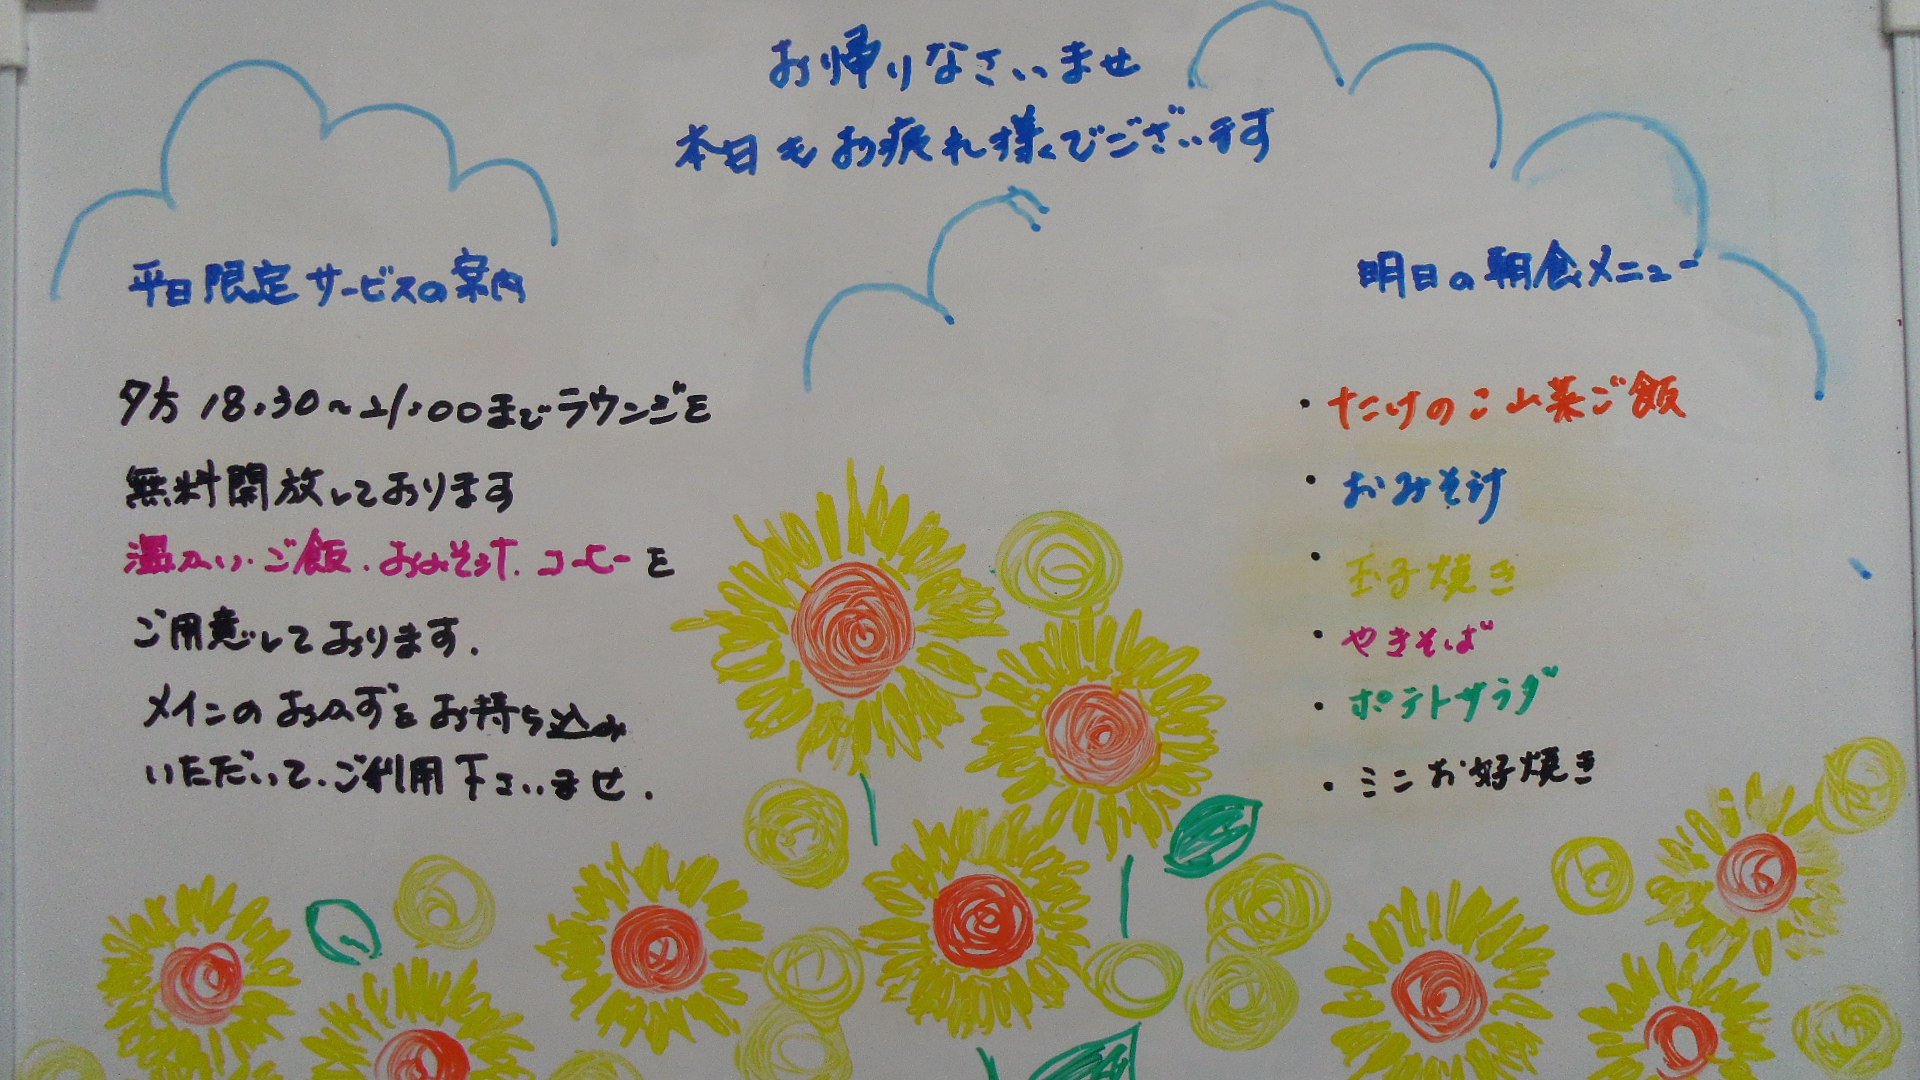 お帰りなさいませ
本日もお疲れ様でございます
平日限定サービスの案内
夕方18:30～21:00までラウンジを
無料開放しております
温かい・ご飯・おみそ汁・コーヒーを
ご用意しております.
メインのおかずをお持ち込み
いただいて、ご利用下さいませ.
明日の朝食メニュー
・たけのこ山菜ご飯
・おみそ汁
・玉子焼き
・やきそば
・ポテトサラダ
・ミニお好焼き